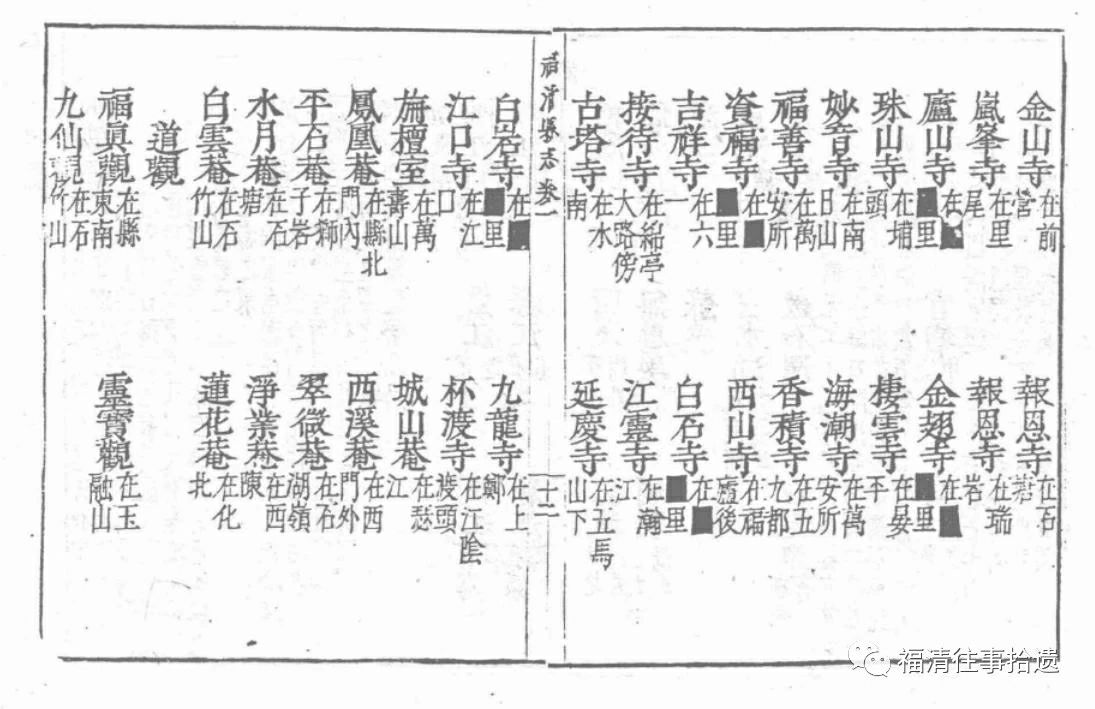 金山寺 在前營 報恩寺 在石塘
嵐峯寺 在里尾 報恩寺 在瑞岩
廬山寺 在■■里 金翅寺 在■■里
珠山寺 在埔頭 棲雲寺 在晏平
妙音寺 在南日山 海潮寺 在萬安所
福善寺 在萬安所 香積寺 在五九都
資福寺 在■■里 西山寺 在福廬後
吉祥寺 在六一 白石寺 在■■里
接待寺 在綿亭大路傍 江靈寺 在瀚江
古塔寺 在水南 延慶寺 在五馬山下
福清縣志卷一 十二
白岩寺 在■■里 九龍寺 在上鄭
江口寺 在江口 杯渡寺 在江陰渡頭
旃檀室 在萬壽山 城山菴 在瑟江
鳳凰菴 在縣北門內 西溪菴 在西門外
平石菴 在獅子岩 翠微菴 在石湖嶺
水月菴 在石塘 淨業菴 在西陳
白雲菴 在石竹山 蓮花菴 在化北
道觀
福眞觀 在縣東南 靈寶觀 在玉融山
九仙觀 在石竹山
福清往事拾遗